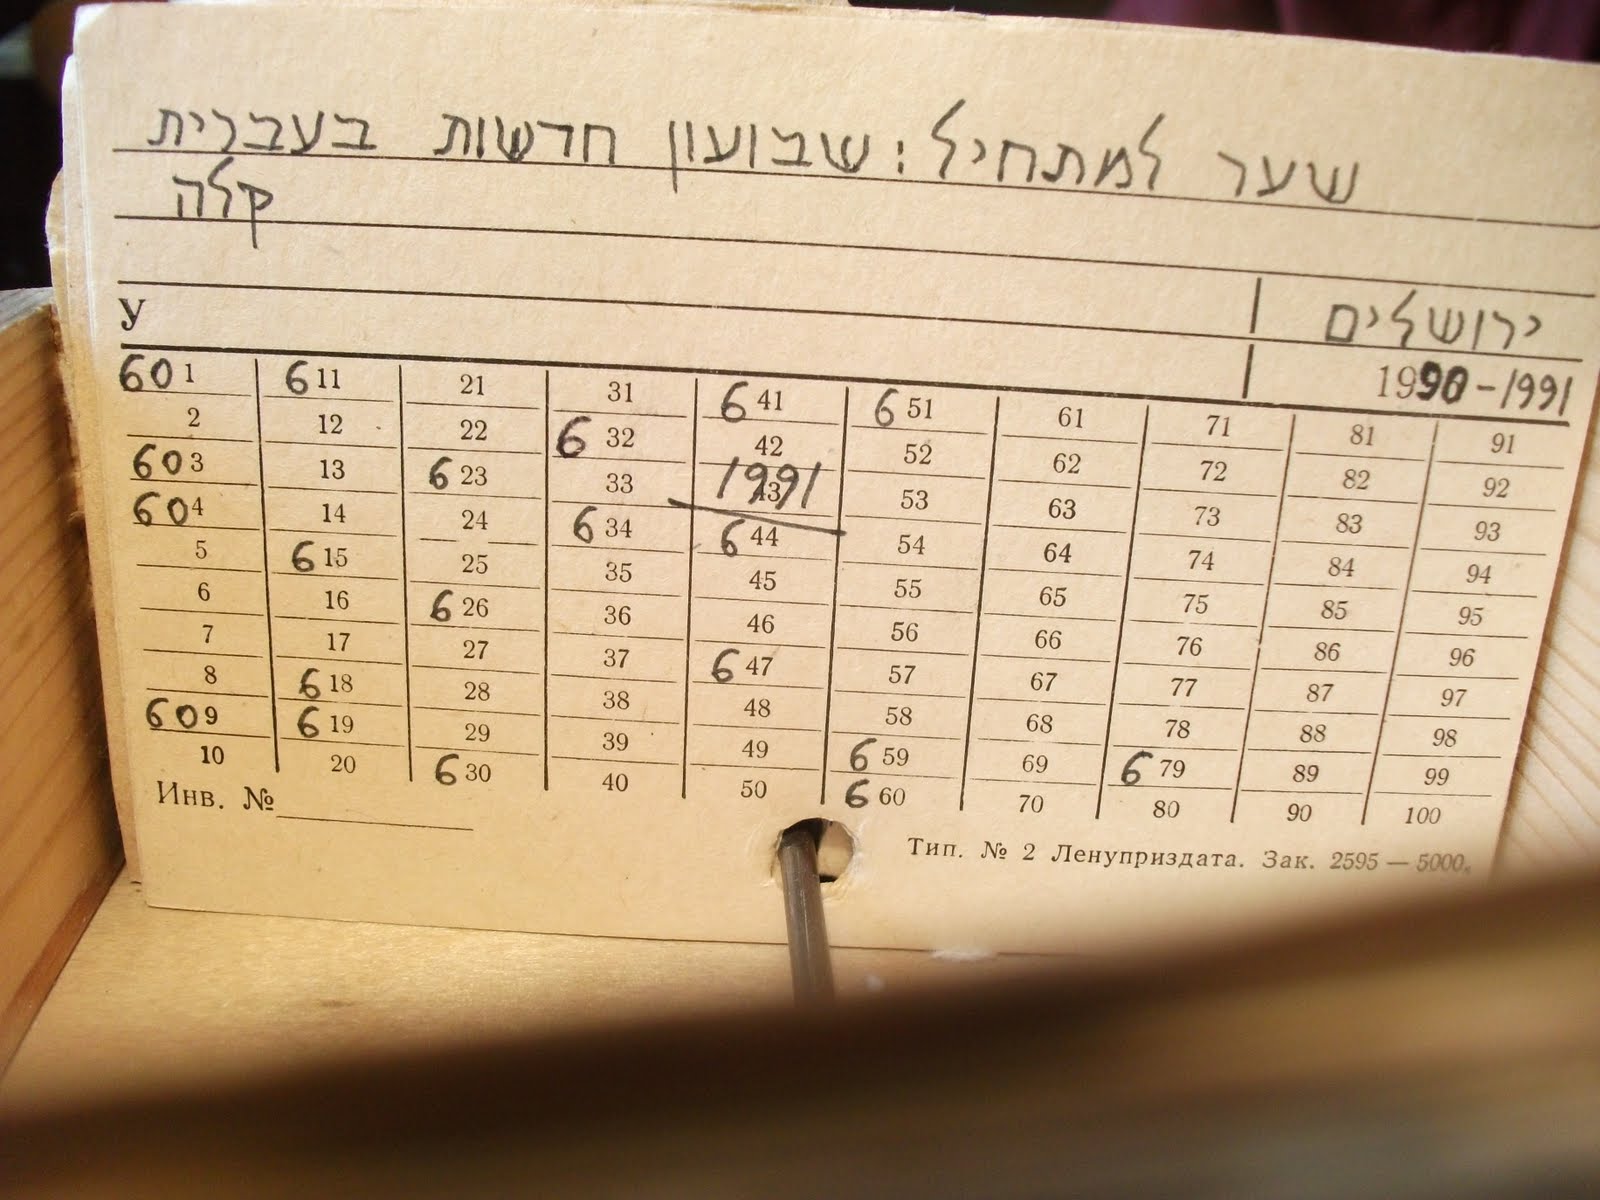 שער למתחיל: שבועון חדשות בעברית
קלה
ירושלים
У
1990-1991
601 611 21 31 641 651 61 71 81 91
2 12 22 632 42 52 62 72 82 92
603 13 623 33 43 53 63 73 83 93
1991
604 14 24 634 644 54 64 74 84 94
5 615 25 35 45 55 65 75 85 95
6 16 626 36 46 56 66 76 86 96
7 17 27 37 647 57 67 77 87 97
8 618 28 38 48 58 68 78 88 98
609 619 29 39 49 659 69 679 89 99
10 20 630 40 50 660 70 80 90 100
Инв. №
Тип. № 2 Ленуприздата. Зак. 2595 — 5000.